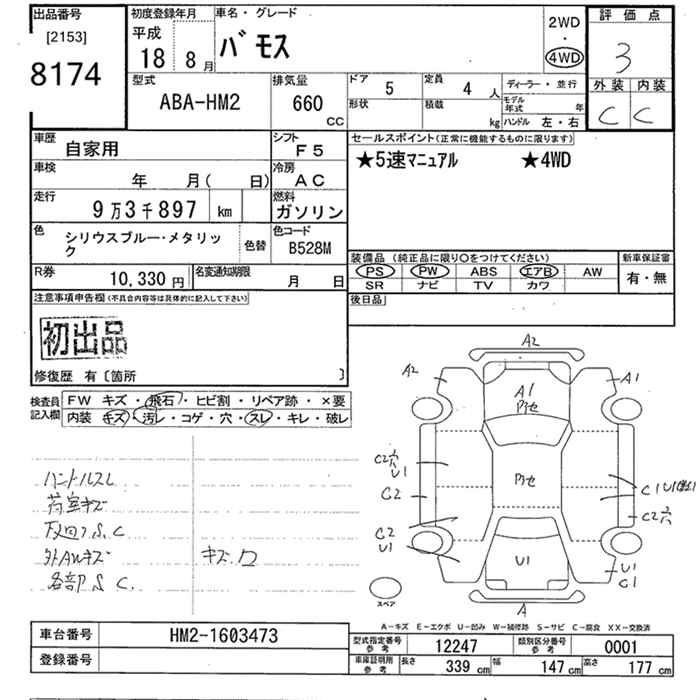 出品番号
[2153]
8174
初度登録年月
平成
18 8月
車名・グレード
バモス
2WD
・
4WD
評価点
3
外装 内装
C C
型式
ABA-HM2
排気量
660
CC
ドア 5
定員 4 人
形状
積載 kg
ディーラー・並行
モデル年式 年
ハンドル 左・右
車歴
自家用
シフト
F5
車検
年 月( 日)
冷房
AC
走行
9万3千897 km
燃料
ガソリン
色
シリウスブルー・メタリック
色替
色コード
B528M
R券
10,330円
名変通知期限
月 日
セールスポイント(正常に機能するものに限ります)
★5速マニュアル ★4WD
装備品 (純正品に限り○をつけてください)
PS PW ABS エアB AW
SR ナビ TV カワ
新車保証書
有・無
後日品
注意事項申告欄(不具合内容等は具体的に記入して下さい)
初出品
修復歴 有〔箇所 〕
検査員記入欄
FW キズ・飛石・ヒビ割・リペア跡・×要
内装 キズ・汚レ・コゲ・穴・スレ・キレ・破レ
ハンドルスレ
荷室キズ
下回りS.C
外AWキズ
キズ.ワ
各部S C.
A2
A2
A1
A1
C2
U1
C2
C1
C2
C2
U1
U1
U1
C1
A
スペア
A-キズ E-エクボ U-凹み W-補修跡 S-サビ C-腐食 XX-交換済
車台番号
HM2-1603473
登録番号
型式指定番号参考
12247
類別区分番号参考
0001
車庫証明用参考
長さ 339 cm
幅 147 cm
高さ 177 cm